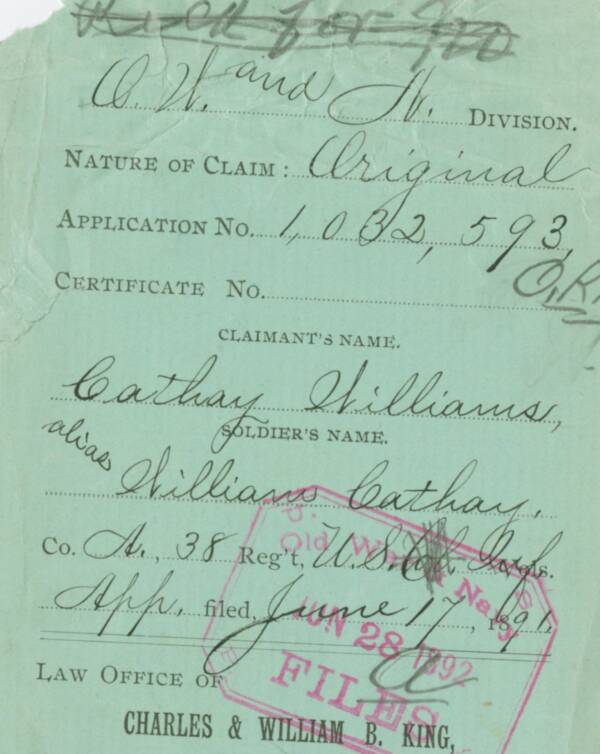 O. W. and N. DIVISION.
NATURE OF CLAIM: Original
APPLICATION NO. 1,032,593,
CERTIFICATE NO.
CLAIMANT'S NAME.
Cathay Williams,
SOLDIER'S NAME.
alias
William Cathay.
Co. A., 38 Reg't, U.S. Inf. s.
App. filed, June 17, 1891.
Old War & Navy
JUN 28 1892
FILES
LAW OFFICE OF
CHARLES & WILLIAM B. KING,